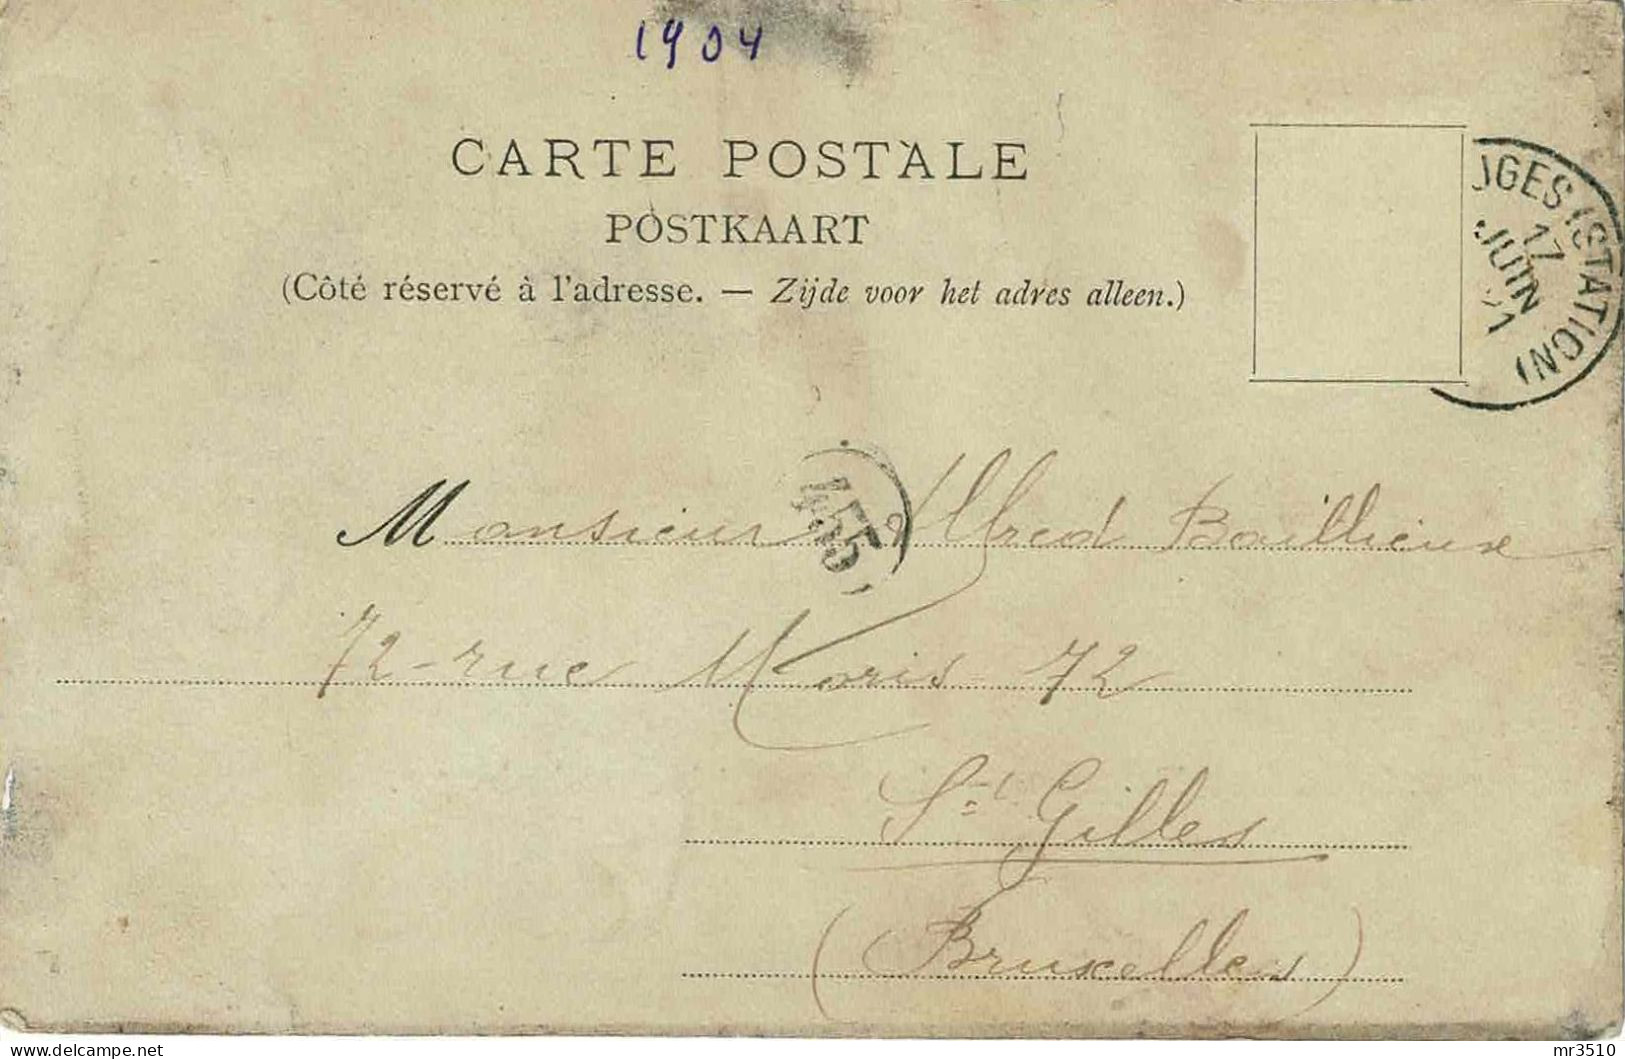 1904
CARTE POSTALE
POSTKAART
(Côté réservé à l'adresse. — Zijde voor het adres alleen.)
UGES (STATION)
17
JUIN
455
Monsieur Alfred Baillieux
72 - rue Moris - 72
St Gilles
(Bruxelles)
mr3510